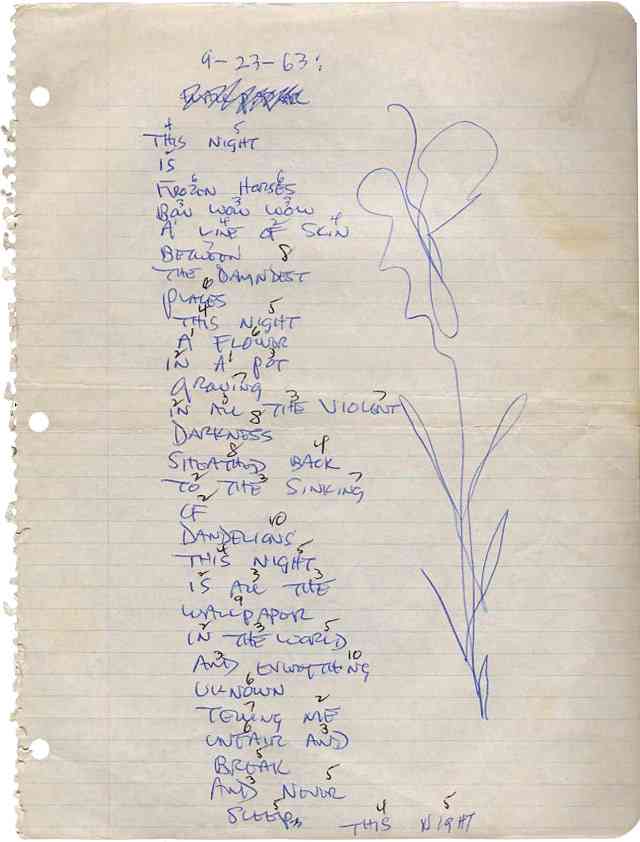 9-23-63:
4 5
THIS NIGHT
2
IS
6 6
FROZEN HORSES
3 3 3
BOW WOW WOW
1 4 2 4
A LINE OF SKIN
7
BETWEEN
8
THE DAMNDEST
6
PLACES
4 5
THIS NIGHT
1 6
A FLOWER
2 1 3
IN A POT
7
GROWING
2 3 3 7
IN ALL THE VIOLENT
8
DARKNESS
8 4
SHEATHED BACK
2 3 7
TO THE SINKING
2
OF
10
DANDELIONS
4 5
THIS NIGHT
2 3 3
IS ALL THE
9
WALLPAPER
2 3 5
IN THE WORLD
3 10
AND EVERYTHING
6
UKNOWN
7 2
TELLING ME
6 3
UNFAIR AND
5
BREAK
3 5
AND NEVER
5 4 5
SLEEP THIS NIGHT